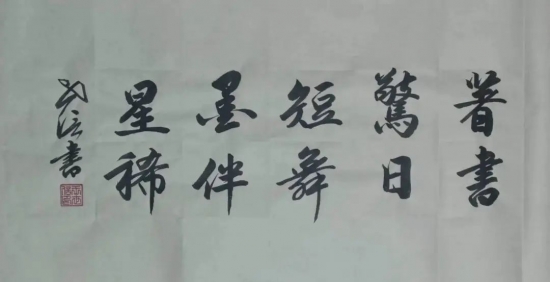 著書
驚日
短舞
墨伴
星稀
書